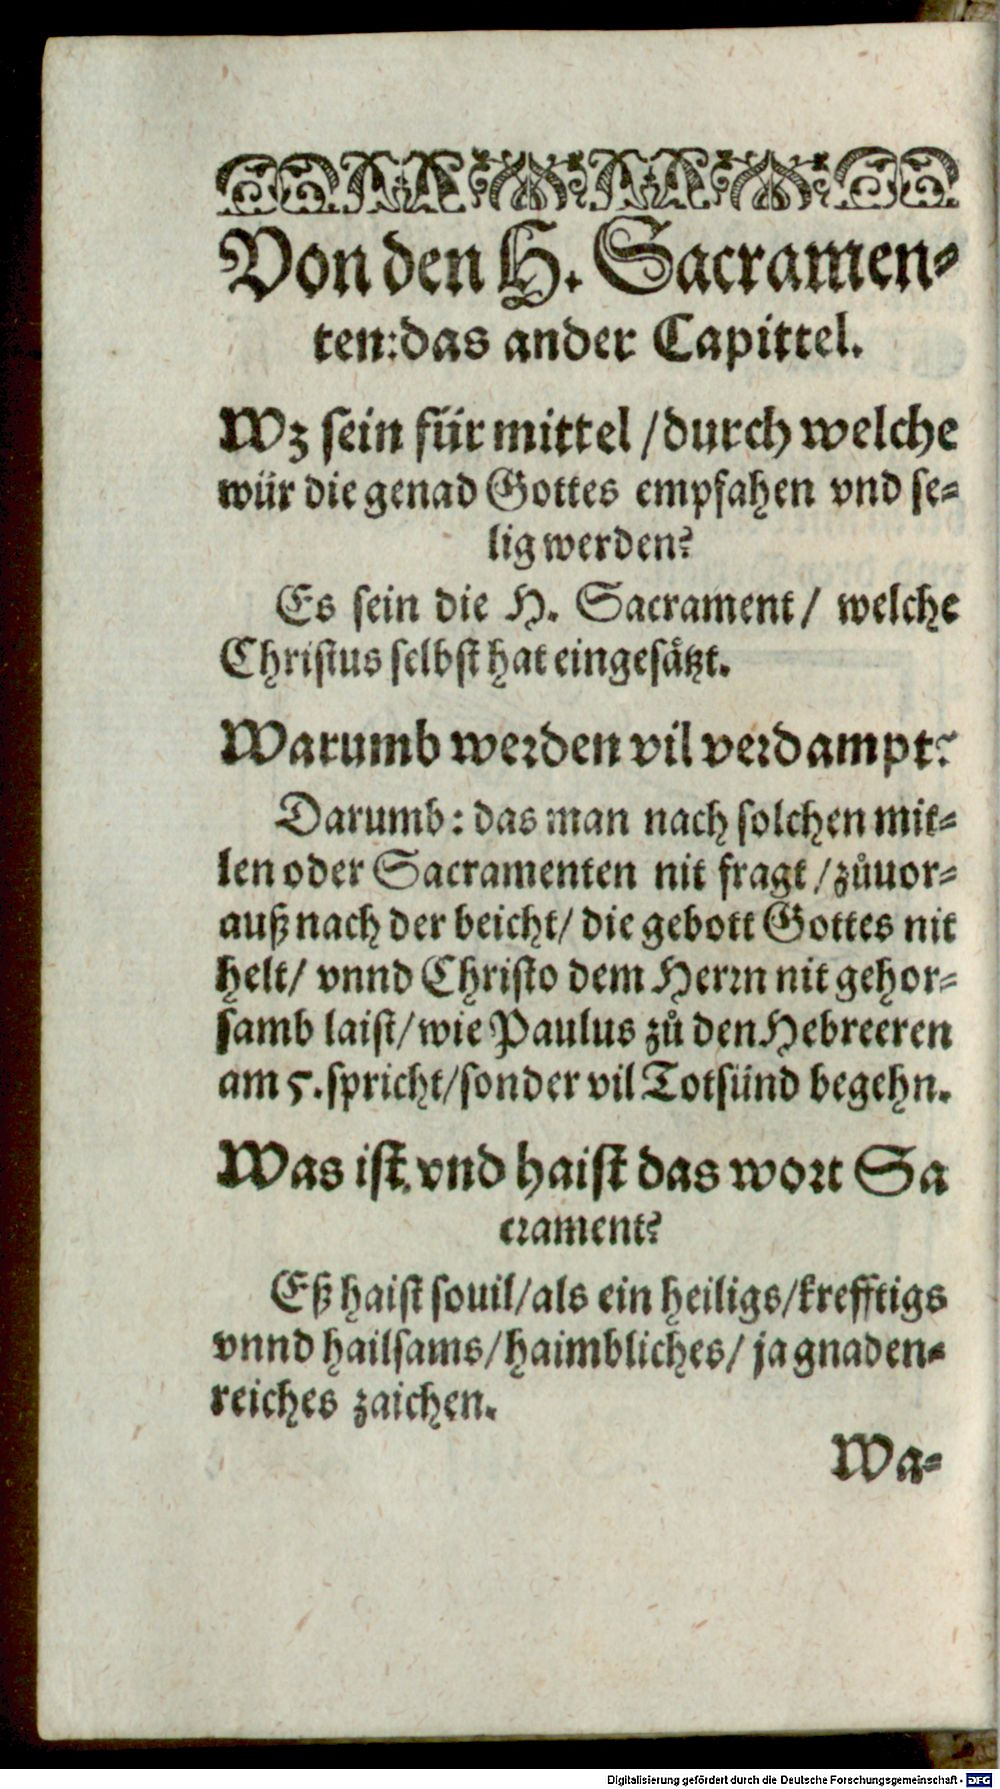 Von den H. Sacramen-
ten: das ander Capittel.
Wz sein für mittel / durch welche
wür die genad Gottes empfahen vnd se-
lig werden?
Es sein die H. Sacrament / welche
Christus selbst hat eingesätzt.
Warumb werden vil verdampt?
Darumb: das man nach solchen mit-
len oder Sacramenten nit fragt / zůuor-
auß nach der beicht / die gebott Gottes nit
helt / vnnd Christo dem Herrn nit gehor-
samb laist / wie Paulus zů den Hebreeren
am 5. spricht / sonder vil Totsünd begehn.
Was ist vnd haist das wort Sa
crament?
Eß haist souil / als ein heiligs / krefftigs
vnnd hailsams / haimbliches / ja gnaden-
reiches zaichen.
Wa-
Digitalisierung gefördert durch die Deutsche Forschungsgemeinschaft - DFG